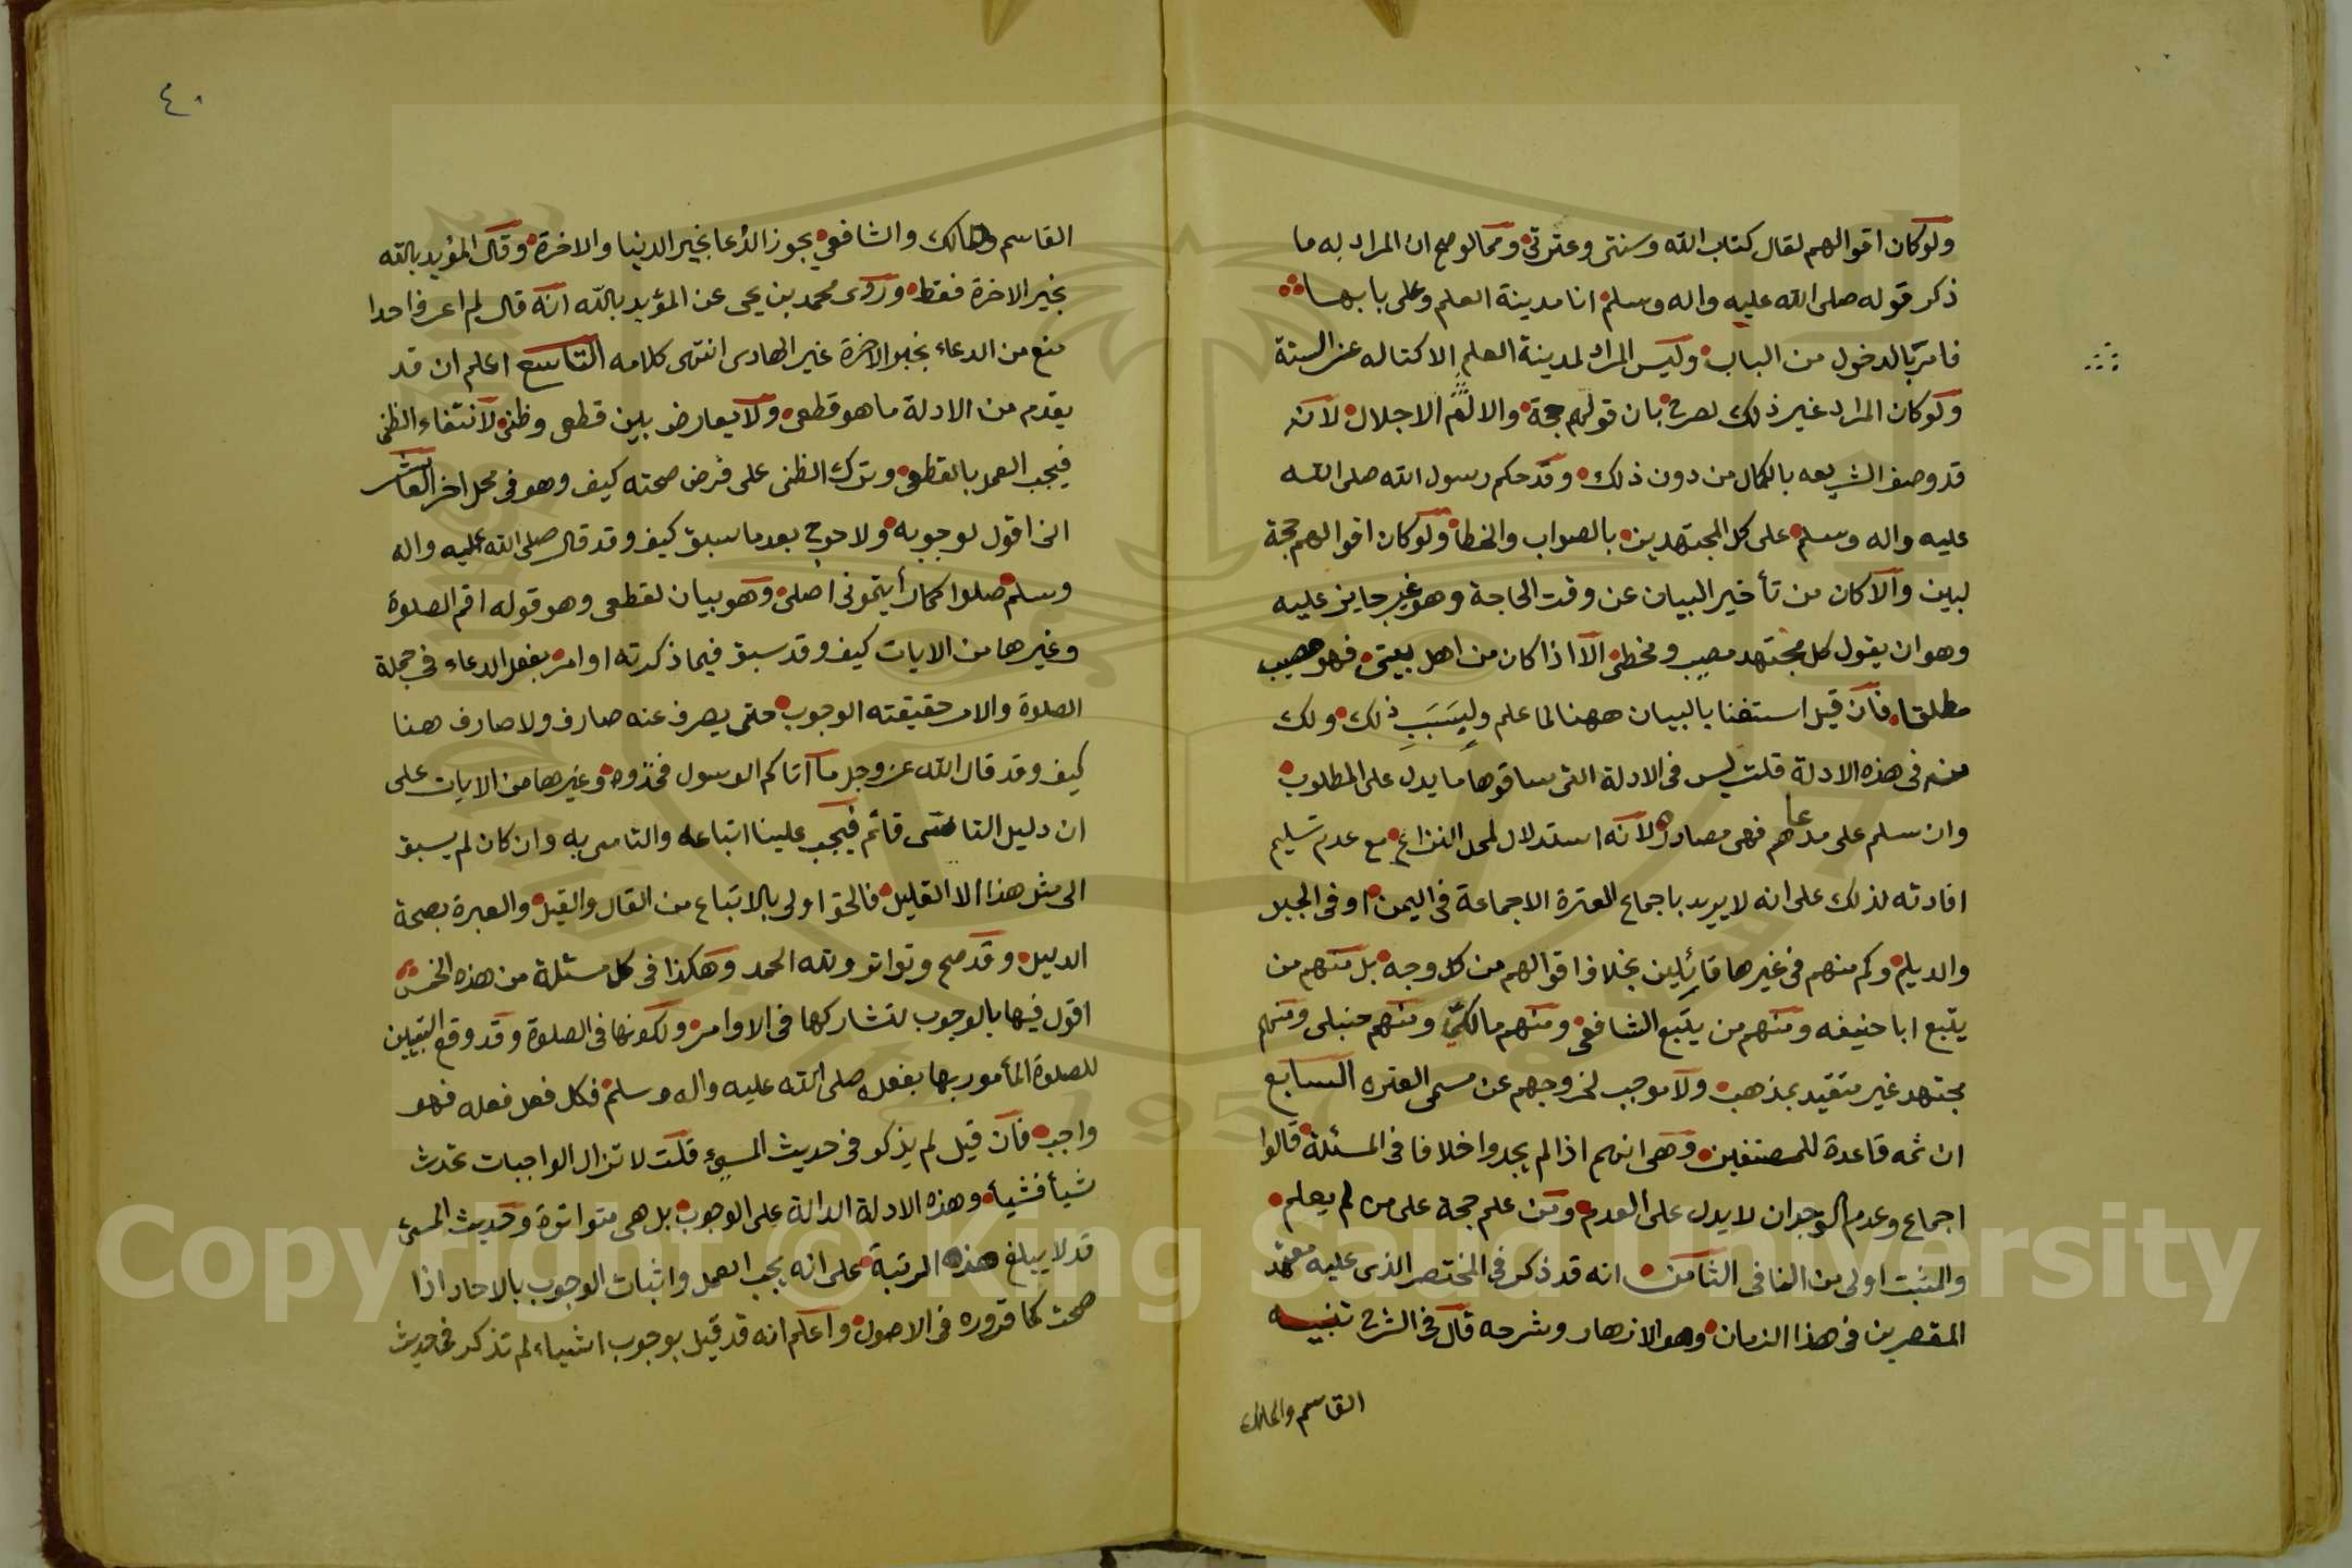 ولو كان اقوالهم لقال كتاب الله وسنتي وعترتي ومما لوضح ان المراد به ما
ذكر قوله صلى الله عليه واله وسلم انا مدينة العلم وعلى بابها
فامر بالدخول من الباب وليس المراد لمدينة العلم الا كتاله عن السنة
ولو كان المراد غير ذلك لصرح بان قولهم حجة والا لتم الاجلال لانه
قد وصف الشريعه بالكمال من دون ذلك وقد حكم رسول الله صلى الله
عليه واله وسلم على كل المجتهدين بالصواب والخطا ولو كان اقوالهم حجة
لبين والا كان من تأخير البيان عن وقت الحاجة وهو غير جايز عليه
وهو ان يقول كل مجتهد مصيب ومخطئ الا اذا كان من اهل بيتي فهو مصيب
مطلقا فان قيل استغنا بالبيان ههنا لما علم وليسبب ذلك ولك
منه في هذه الادلة قلت ليس في الادلة التي ساقوها ما يدل على المطلوب
وان سلم على مدعاهم فهى مصادرة لانه استدلال لمحل النزاع مع عدم تسليم
افادته لذلك على انه لا يريد باجماع العترة الا جماعة في اليمن او في الجبل
والديلم وكم منهم في غيرها قائلين بخلاف اقوالهم من كل وجه بل منهم من
يتبع ابا حنيفه ومنهم من يتبع الشافعي ومنهم مالكي ومنهم حنبلى ومنهم
مجتهد غير متقيد بمذهب ولا موجب لخروجهم عن مسمى العتره السابع
ان ثمه قاعدة للمصنفين وهى انهم اذا لم يجدوا خلافا في المسئلة قالوا
اجماع وعدم الوجدان لا يدل على العدم ومن علم حجة على من لم يعلم
والمثبت اولى من النافى الثامن انه قد ذكر في المختصر الذى عليه معتمد
المقصرين في هذا الزمان وهو الازهار وشرحه قال في الشرح تنبيه
القاسم والمالك
٤٠
القاسم ومالك والشافعي يجوز الدعا بخير الدنيا والاخرة وقال المؤيد بالله
بخير الاخرة فقط وروى محمد بن يحى عن المؤيد بالله انه قال لم اعرف احدا
منع من الدعاء بخير الاخرة غير الهادى انتهى كلامه التاسع اعلم ان قد
يقدم من الادلة ما هو قطعى ولا يعارض بين قطعى وظنى لانتفاء الظنى
فيجب العمل بالقطعى وترك الظنى على فرض صحته كيف وهو في محل اخر العاشر
انى اقول لوجوبه ولا حرج بعد ما سبق كيف وقد قال صلى الله عليه واله
وسلم صلوا كما رأيتمونى اصلى وهو بيان لقطعى وهو قوله اقم الصلوة
وغيرها من الايات كيف وقد سبق فيما ذكرته اوامر بفعل الدعاء في جملة
الصلوة والامر حقيقته الوجوب حتى يصرف عنه صارف ولا صارف هنا
كيف وقد قال الله عز وجل ما آتاكم الرسول فخذوه وغيرها من الايات على
ان دليل التاسى قائم فيجب علينا اتباعه والتاسى به وان كان لم يسبق
الى مثل هذا الا القليل فالحق اولى بالاتباع من القال والقيل والعبرة بصحة
الدليل وقد صح وتواتر ولله الحمد وهكذا في كل مسئلة من هذه الخمس
اقول فيها بالوجوب لتشاركها في الاوامر ولكونها في الصلوة وقد وقع التبيين
للصلوة المأمور بها بفعله صلى الله عليه واله وسلم فكل فعل فعله فهو
واجب فان قيل لم يذكر في حديث المسىء قلت لا تزال الواجبات تحدث
شيأ فشيأ وهذه الادلة الدالة على الوجوب بل هى متواترة وحديث المسئ
قد لا يبلغ هذه المرتبة على انه يجب العمل واثبات الوجوب بالاحاد اذا
صحت كما قرروه في الاصول واعلم انه قد قيل بوجوب اشياء لم تذكر في حديث
Copyright © King Saud University
1957